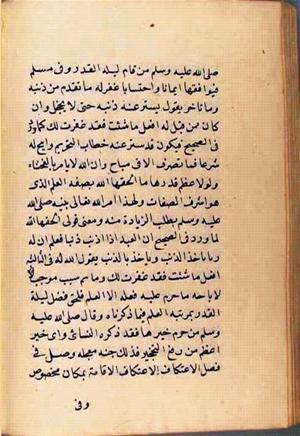 صلى الله عليه وسلم من قام ليلة القدر وفى مسلم
فيوافقها ايمانا واحتسابا غفر له ما تقدم من ذنبه
وما تأخر يقول يسترعنه ذنبه حتى لا يخجل وان
كان ممن قيل له افعل ما شئت فقد غفرت لك كما ورد
فى الصحيح فيكون قد سترعنه خطاب التحريم وابيح له
شرعا فما تصرف الا فى مباح وان الله لا يأمر بالفحشاء
ولولا عظم قدرها ما الحقها الله بصفة العلم الذى هو
اشرف الصفات ولهذا امر الله تعالى نبيه صلى الله
عليه وسلم بطلب الزيادة منه ومعنى قولى الحقها الله
لما ورد فى الصحيح ان العبد اذا اذنب ذنبا فعلم ان له
ربا ياخذ الذنب وياخذ بالذنب يقول الله له فى الثالثة
افعل ما شئت فقد غفرت لك وما ثم سبب موجب
لاباحة ما حرم عليه فعله الا العلم فلحق فضل ليلة
القدر بمرتبة العلم فيما ذكرناه وقال صلى الله عليه
وسلم من حرم خيرها فقد ذكره النسائى واى خير
اعظم من رفع التحجير فذلك جنة معجلة وصل فى
فصل الاعتكاف الاعتكاف الاقامة بمكان مخصوص
وفى